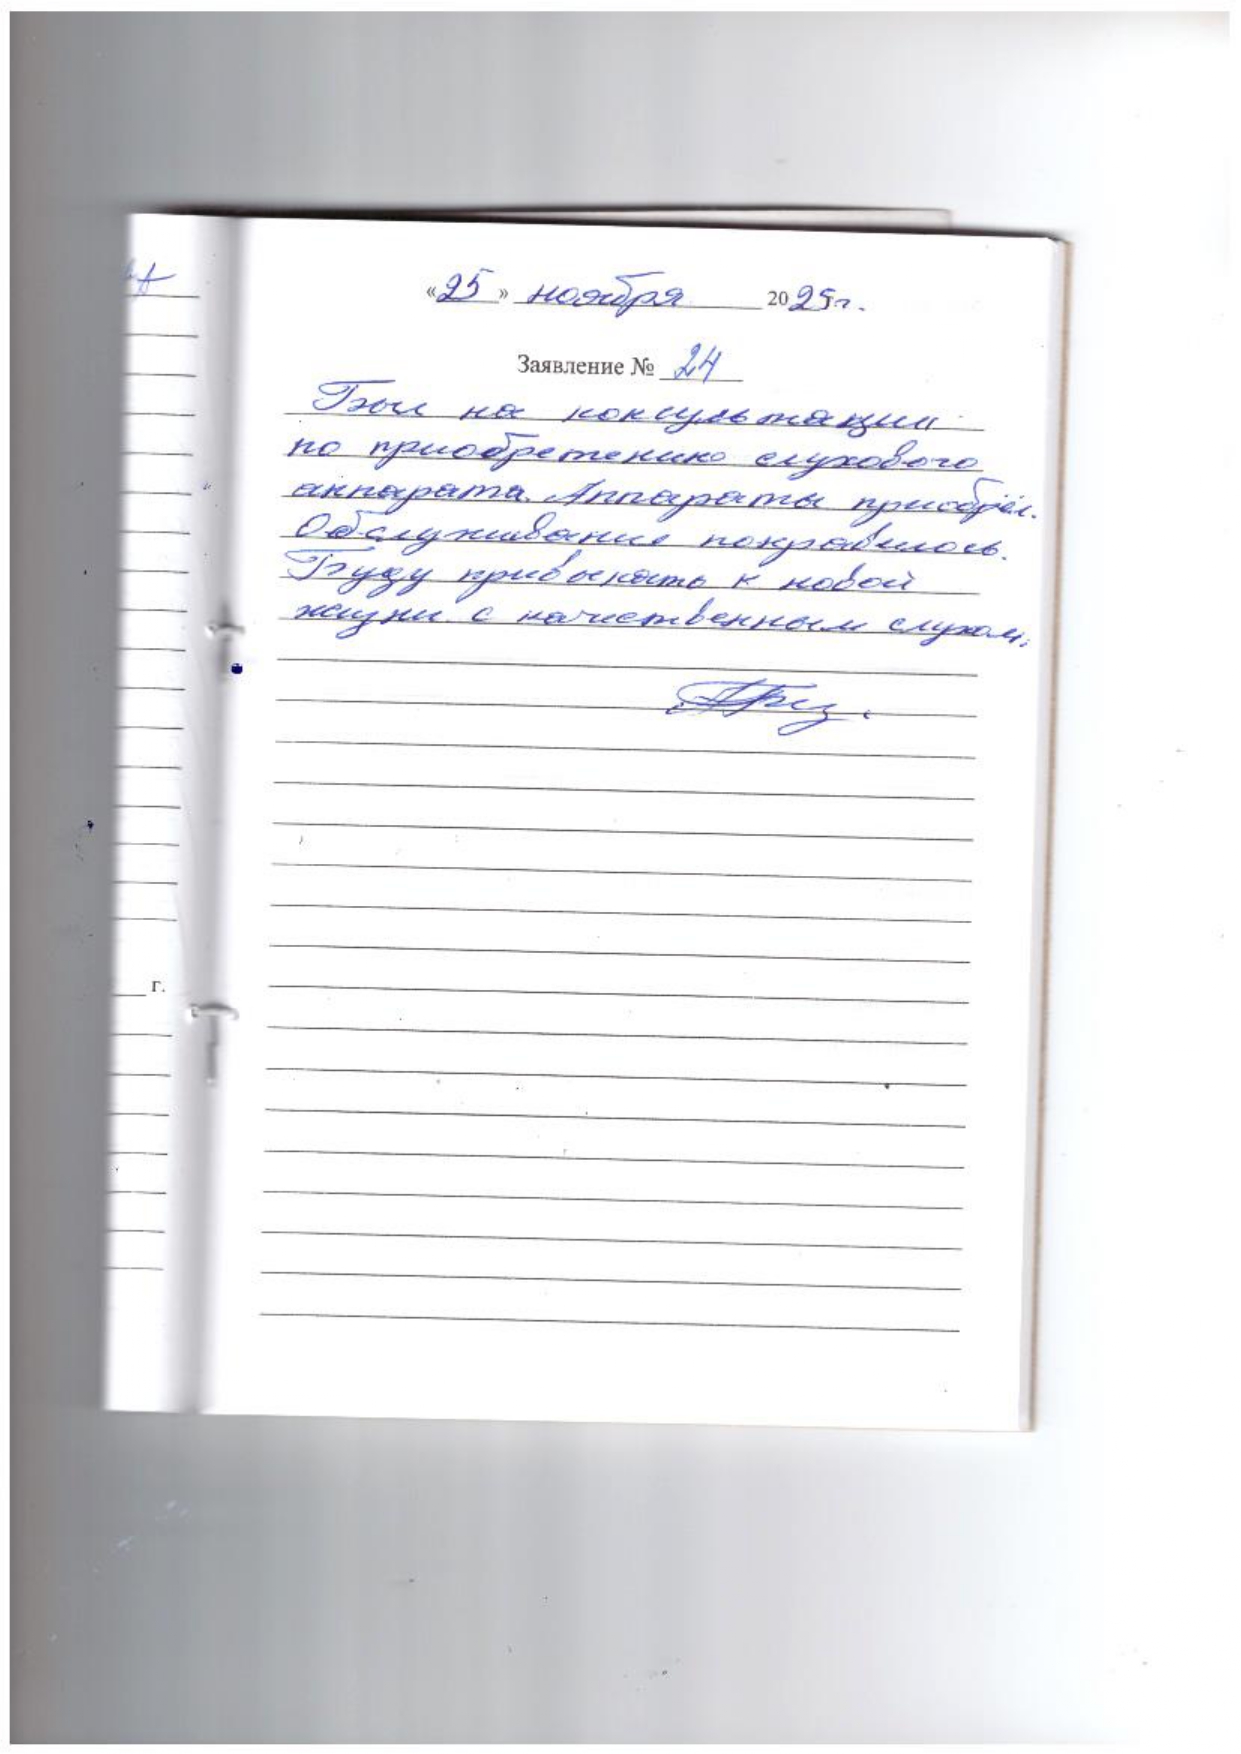 «25» ноября 2025 г.
Заявление № 24
Был на консультации
по приобретению слухового
аппарата. Аппараты приобрёл.
Обслуживание понравилось.
Буду привыкать к новой
жизни с качественным слухом.
г.